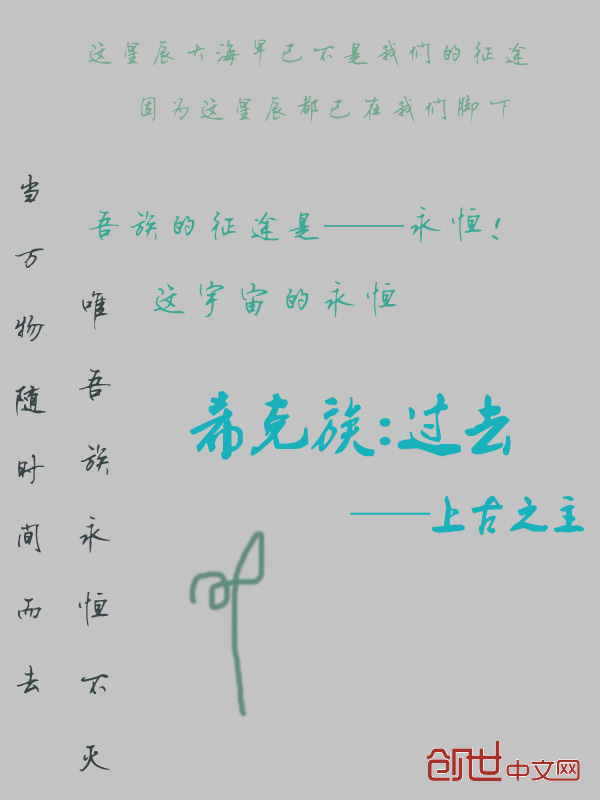 这星辰大海早已不是我们的征途
因为这星辰都已在我们脚下
吾族的征途是——永恒！
这宇宙的永恒
当万物随时间而去
唯吾族永恒不灭
希克族:过去
——上古之主
创世中文网